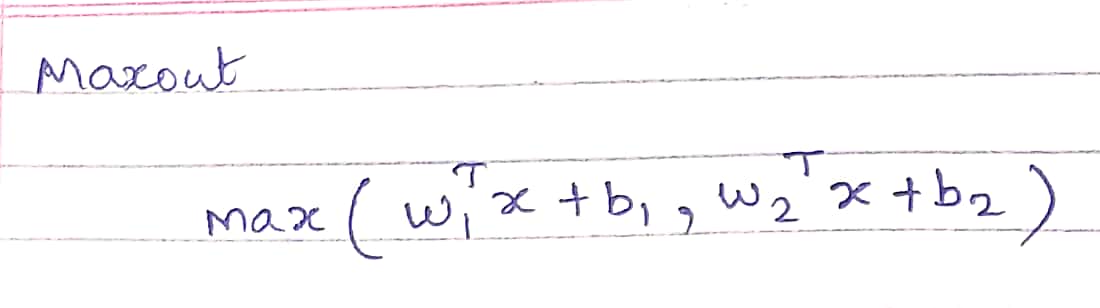 Maxout
max ( w₁ᵀx + b₁ , w₂ᵀx + b₂ )